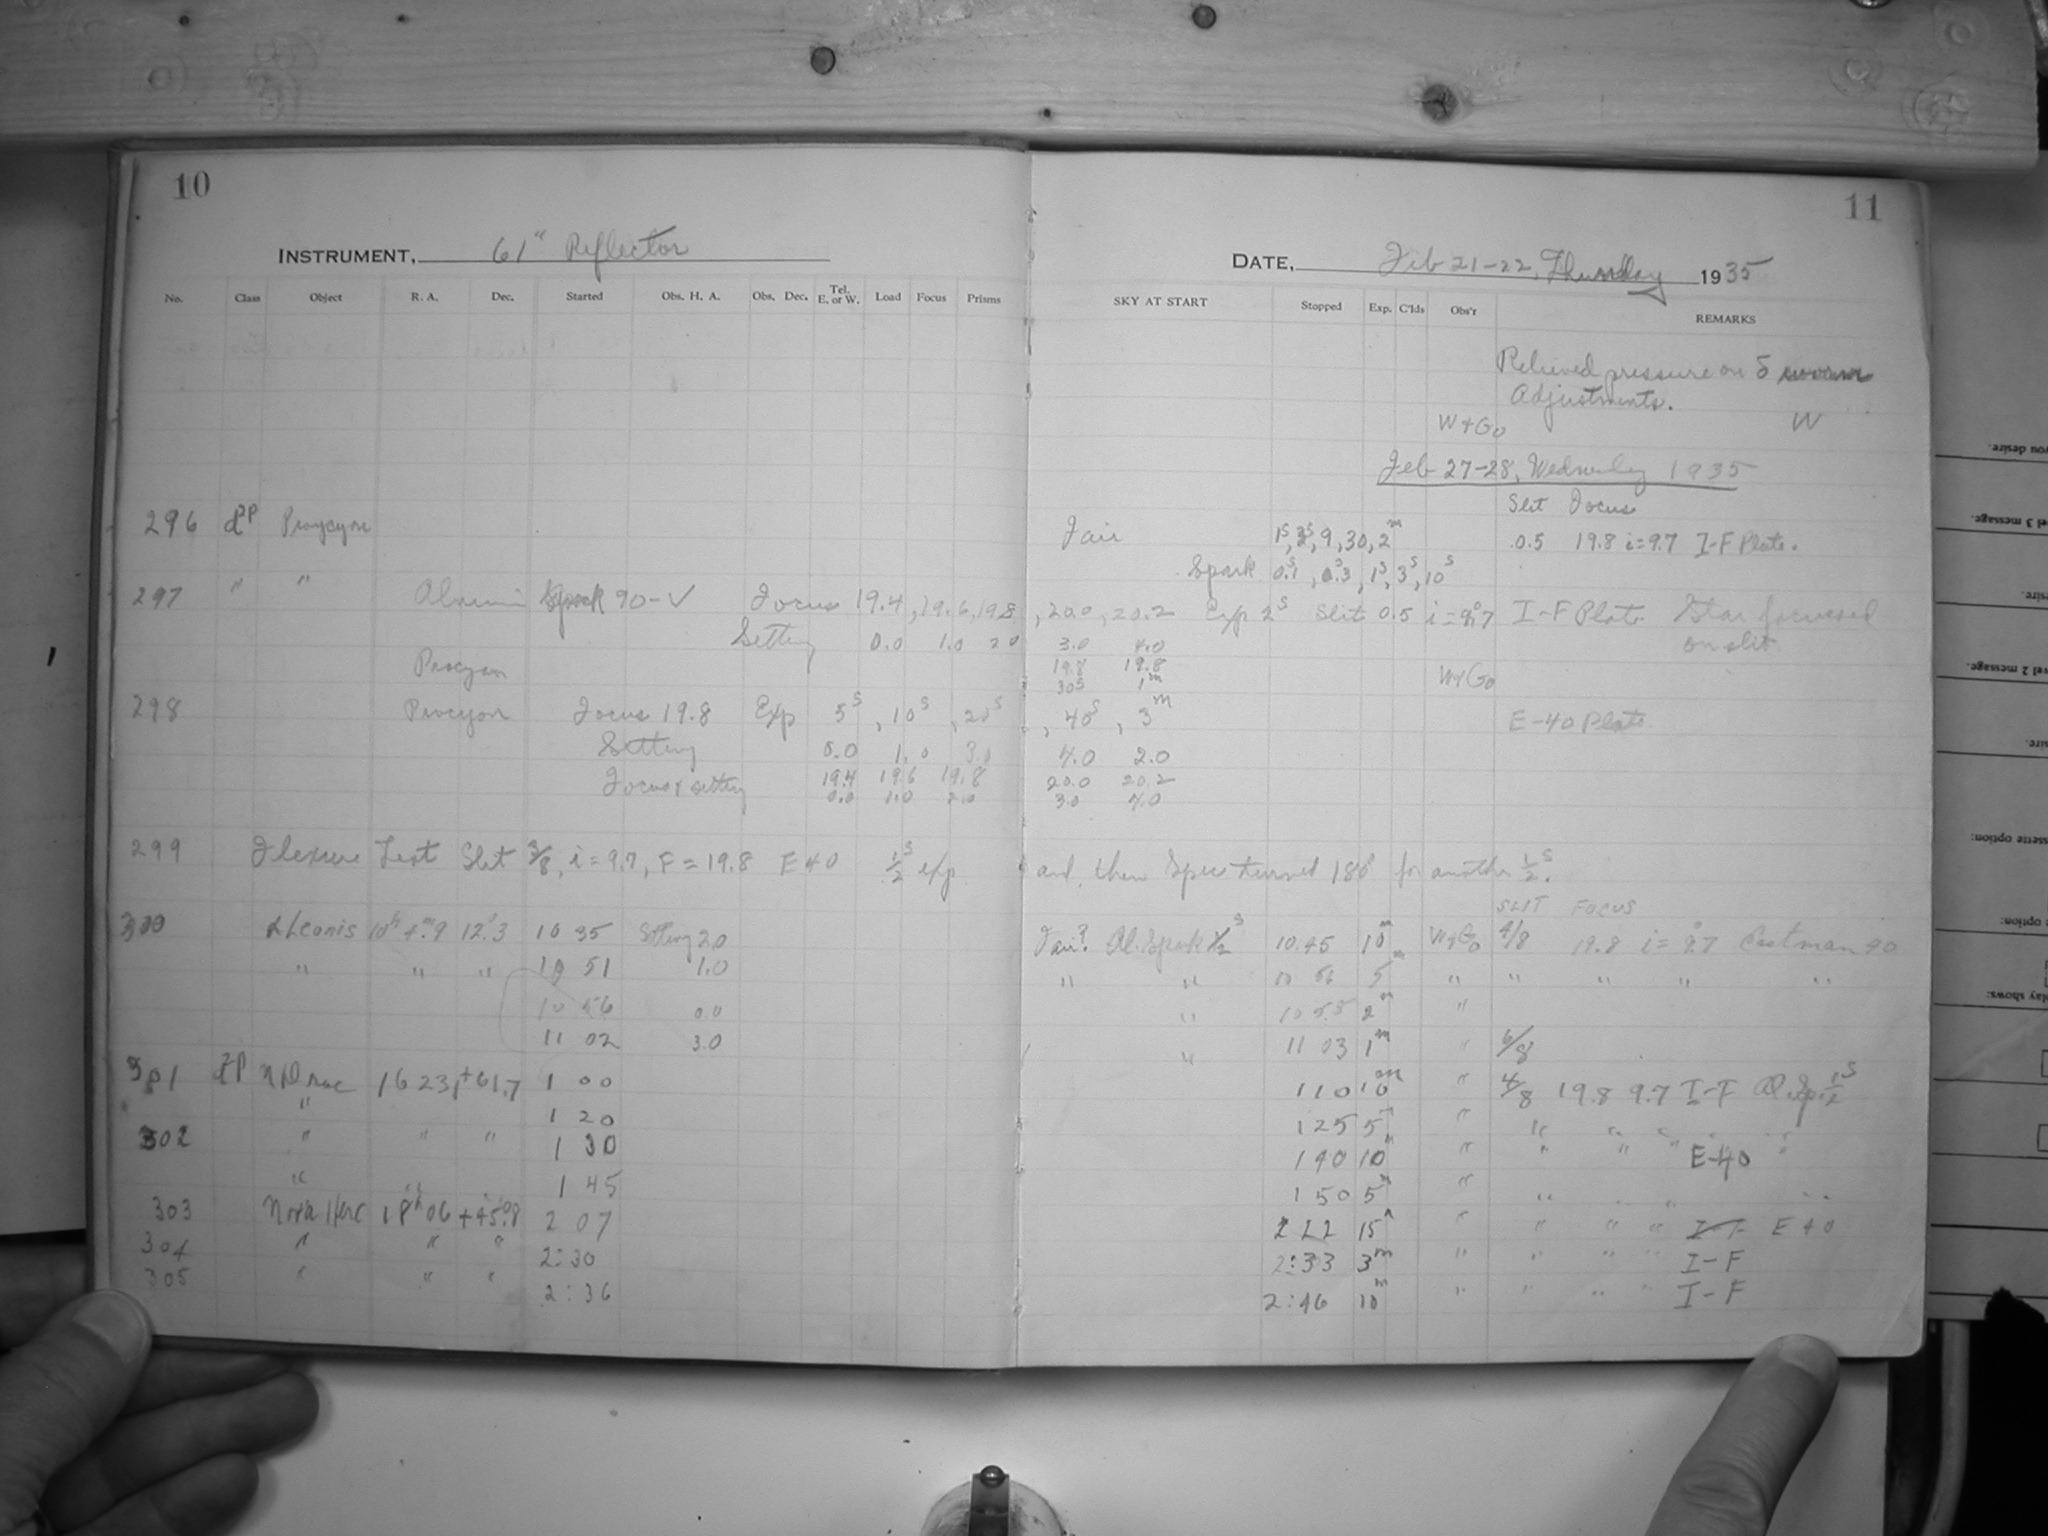 10
INSTRUMENT, 61" Reflector
No. Class Object R. A. Dec. Started Obs. H. A. Obs. Dec. Tel. E. or W. Load Focus Prisms
296 d2P Procyon
297 " " Alumin Spark 90-V Focus 19.4, 19.6, 19.8
Setting 0.0 1.0 2.0
Procyon
298 Procyon Focus 19.8 Exp 5s, 10s, 20s
Setting 0.0 1.0 3.0
Focus & setting 19.4 19.6 19.8
0.0 1.0 2.0
299 Flexure Test Slit 3/8, i=9.7, F=19.8 E40 1/2s exp
300 α Leonis 10h 4m.9 12°.3 10 35 Setting 2.0
" " " 10 51 1.0
10 56 0.0
11 02 3.0
301 16 23 +61.7 1 00
" 1 20
302 " " " 1 30
" 1 45
303 Nova Herc 18h 06 +45°.8 2 07
304 " " " 2:30
305 " " " 2:36
11
DATE, Feb 21-22, Thursday 1935
SKY AT START Stopped Exp. C'lds Obs'r REMARKS
Relieved pressure on δ
Adjustments. W
W & Go
Feb 27-28, Wednesday 1935
Slit Focus
Fair 1s, 3s, 9, 30, 2m 0.5 19.8 i=9.7 I-F Plate.
Spark 0.1s, 0.3s, 1s, 3s, 10s
, 20.0, 20.2 Exp 2s Slit 0.5 i=9°.7 I-F Plate Star focussed
3.0 4.0 on slit.
19.8 19.8
30s 1m W & Go
, 40s, 3m E-40 Plate
4.0 2.0
20.0 20.2
3.0 4.0
and then Spec turned 180° for another 1/2s.
SLIT FOCUS
Fair? Al. Spark 1/2s 10.45 10m W & Go 4/8 19.8 i=9°.7 Eastman 40
" " 10 56 5m " " " " "
" 2m "
" 11 03 1m " 6/8
1 10 10m " 4/8 19.8 9.7 I-F Al. Sp. 1/2s
1 25 5m " " " " " "
1 40 10m " " " " E-40 "
1 50 5m " " " " "
2 22 15m " " " " I-F E40
2:33 3m " " " " I-F
2:46 10m " " " " I-F
you desire.
vel 3 message.
vel 2 message.